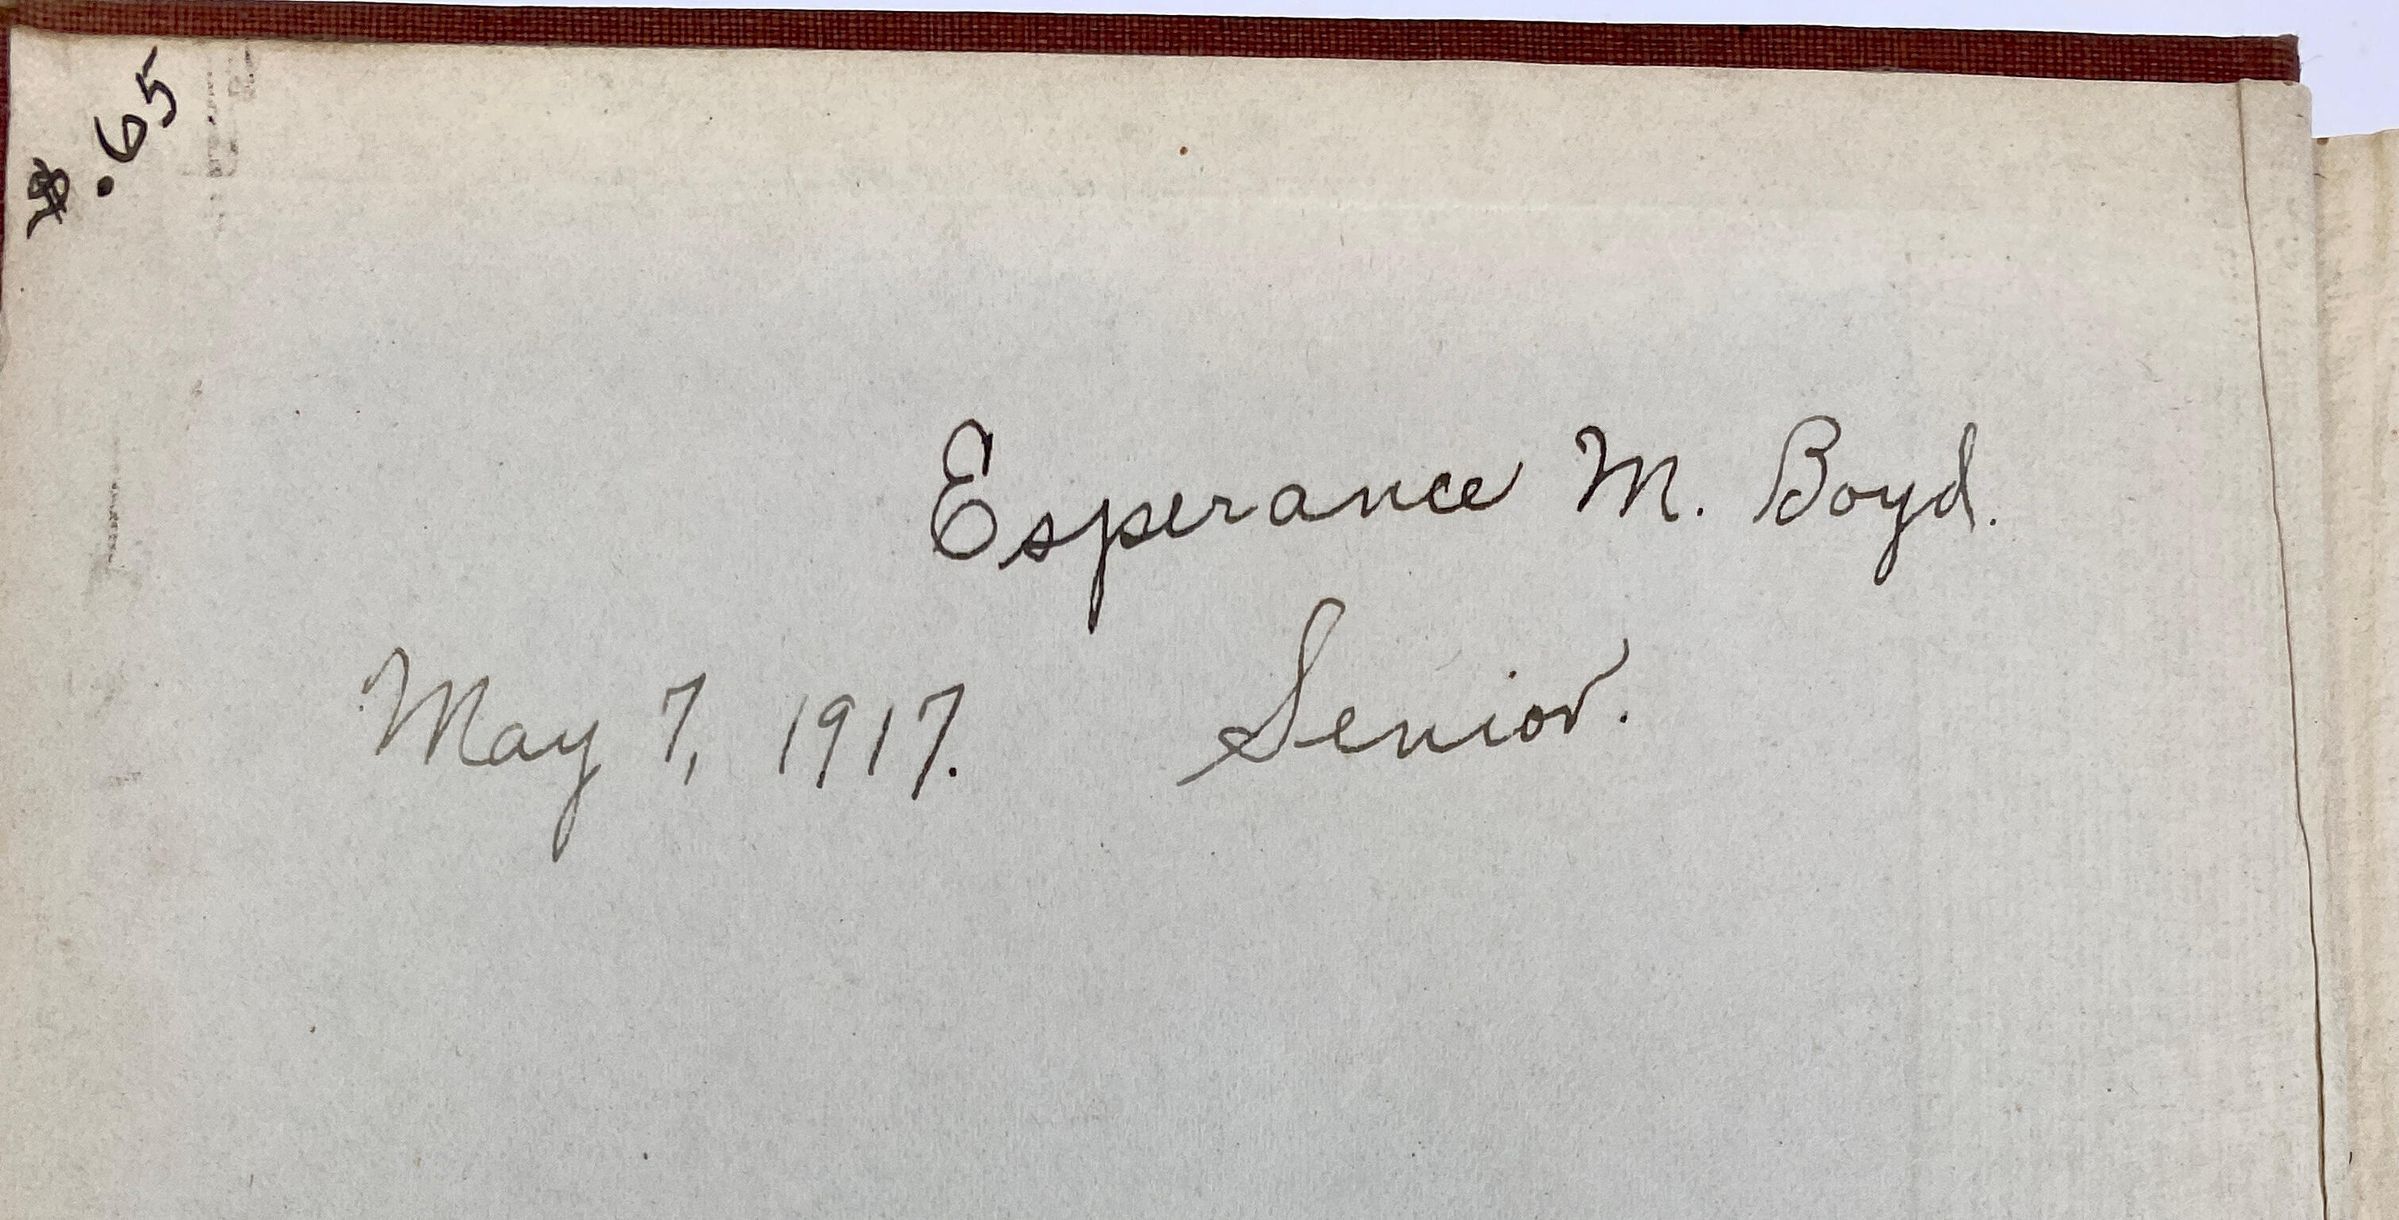 $.65
Esperance M. Boyd.
May 7, 1917. Senior.